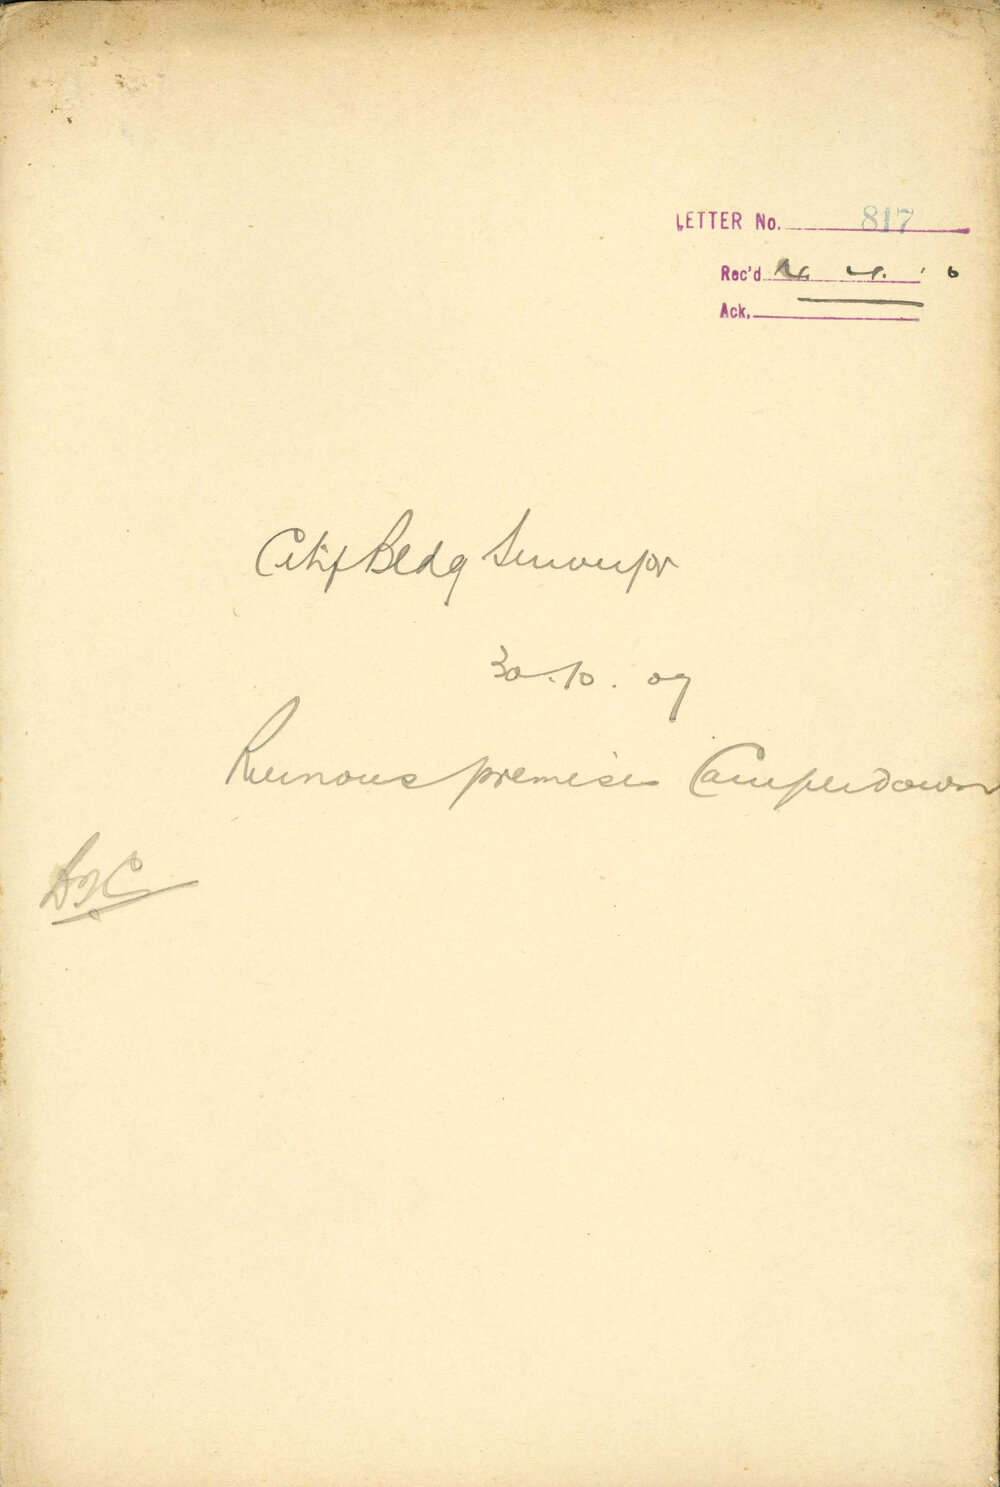 LETTER No. 817
Rec'd
Ack.
City Bldg Surveyor
30.10.09
Ruinous premises Camperdown